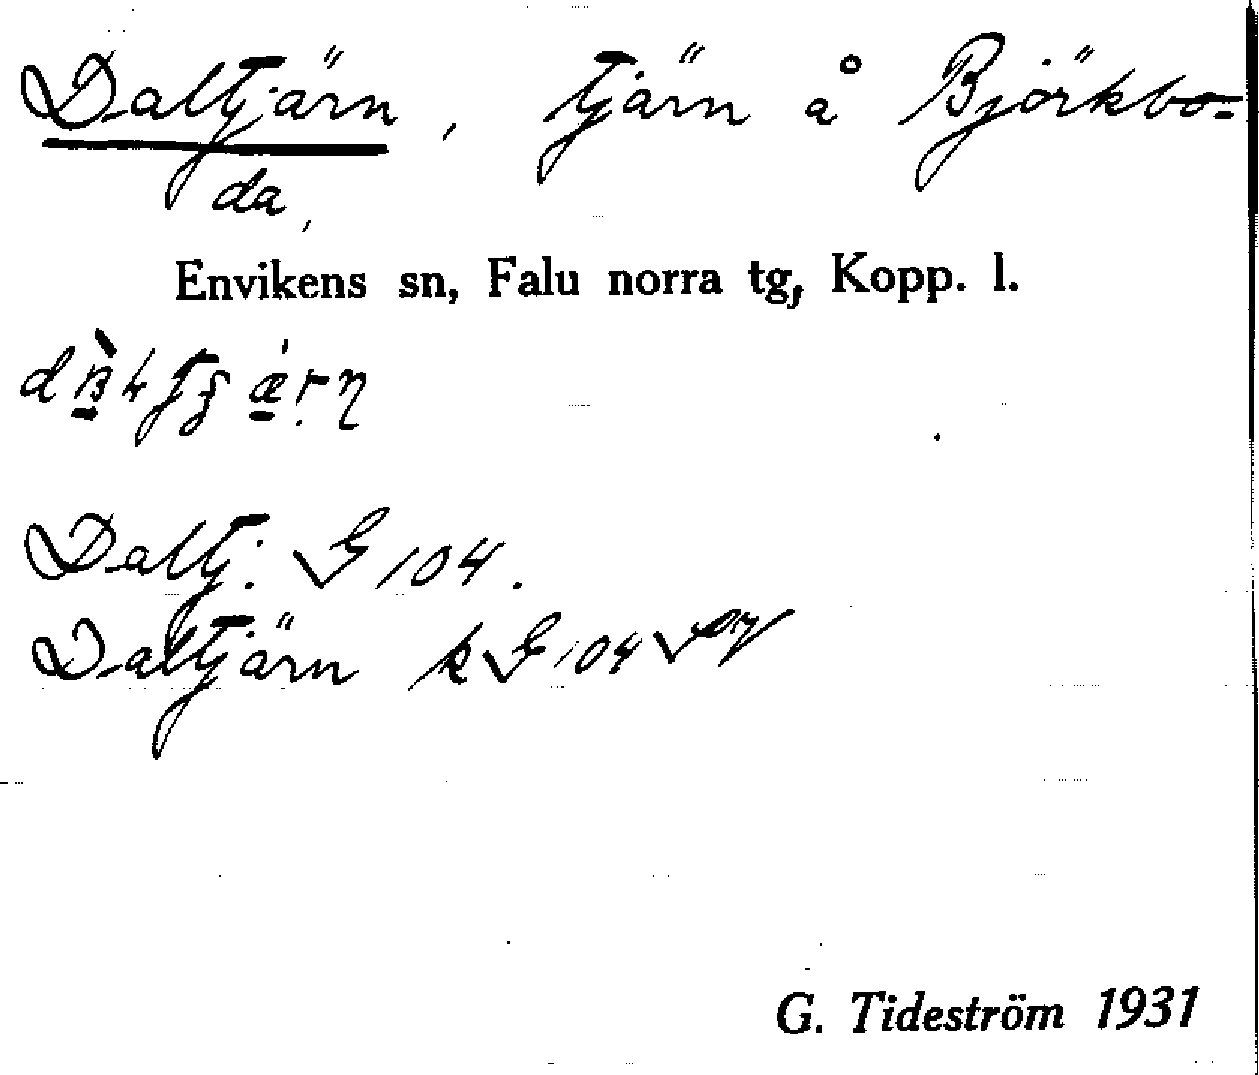 Daltjärn, tjärn å Björkbo-
da,
Envikens sn, Falu norra tg, Kopp. l.
Daltj. G 104.
Daltjärn k G 104
G. Tideström 1931